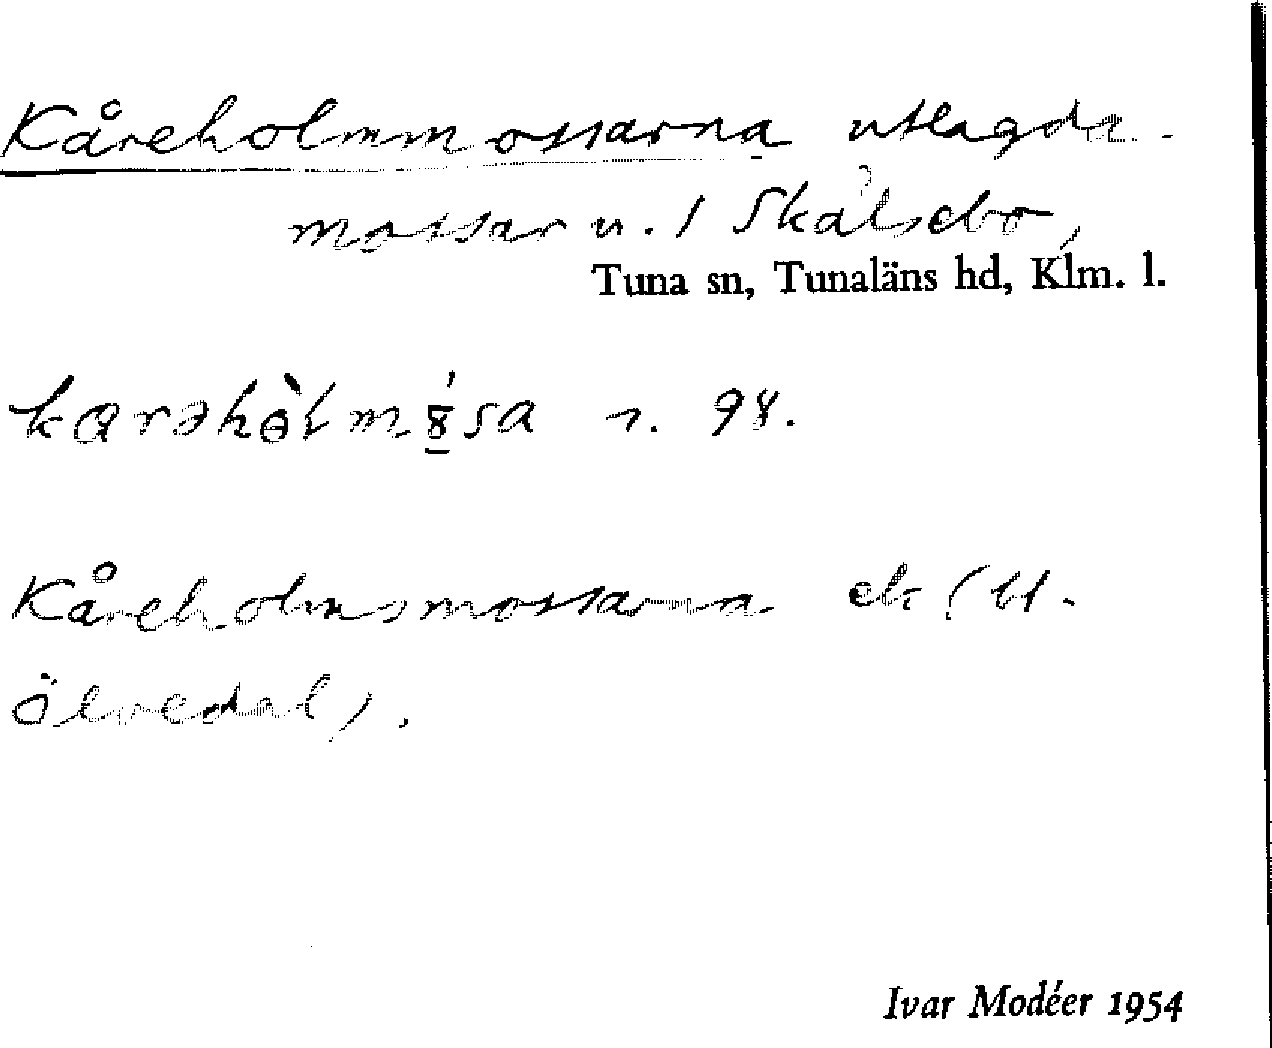 Kåreholmmossarna utlagda
mossar u. 1 Skålsebo,
Tuna sn, Tunaläns hd, Klm. l.
r. 98.
Kåreholmsmossarna ek (U.
Ölvedal).
Ivar Modéer 1954